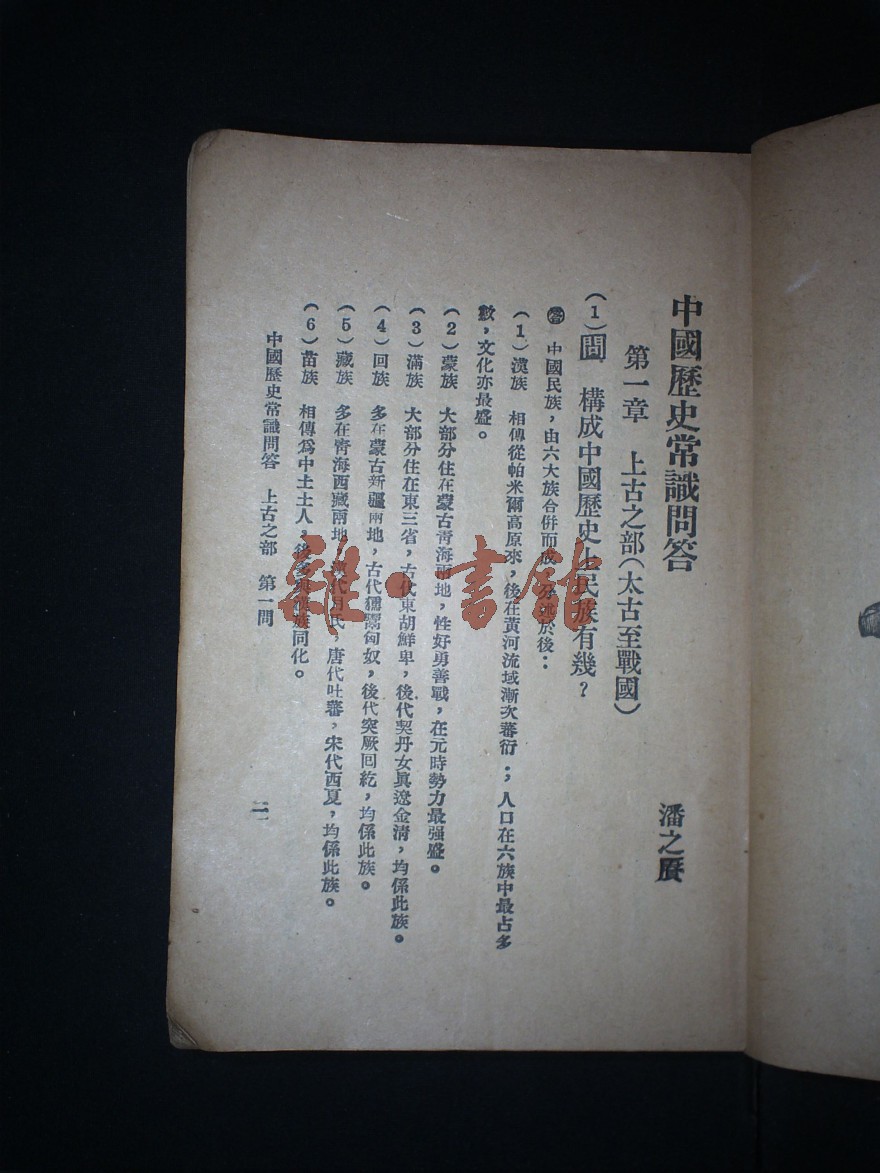 中國歷史常識問答
潘之賡
第一章　上古之部（太古至戰國）
（1）問　構成中國歷史上民族有幾？
答　中國民族，由六大族合併而成，分述於後：
（1）漢族　相傳從帕米爾高原來，後在黃河流域漸次蕃衍；，人口在六族中最占多
數，文化亦最盛。
（2）蒙族　大部分住在蒙古青海兩地，性好勇善戰，在元時勢力最强盛。
（3）滿族　大部分住在東三省，古代東胡鮮卑，後代契丹女眞遼金清，均係此族。
（4）回族　多在蒙古新疆兩地，古代獯鬻匈奴，後代突厥回紇，均係此族。
（5）藏族　多在青海西藏兩地，漢代月氏，唐代吐蕃，宋代西夏，均係此族。
（6）苗族　相傳爲中土土人，後多與漢族同化。
中國歷史常識問答　上古之部　第一問
雜·書館